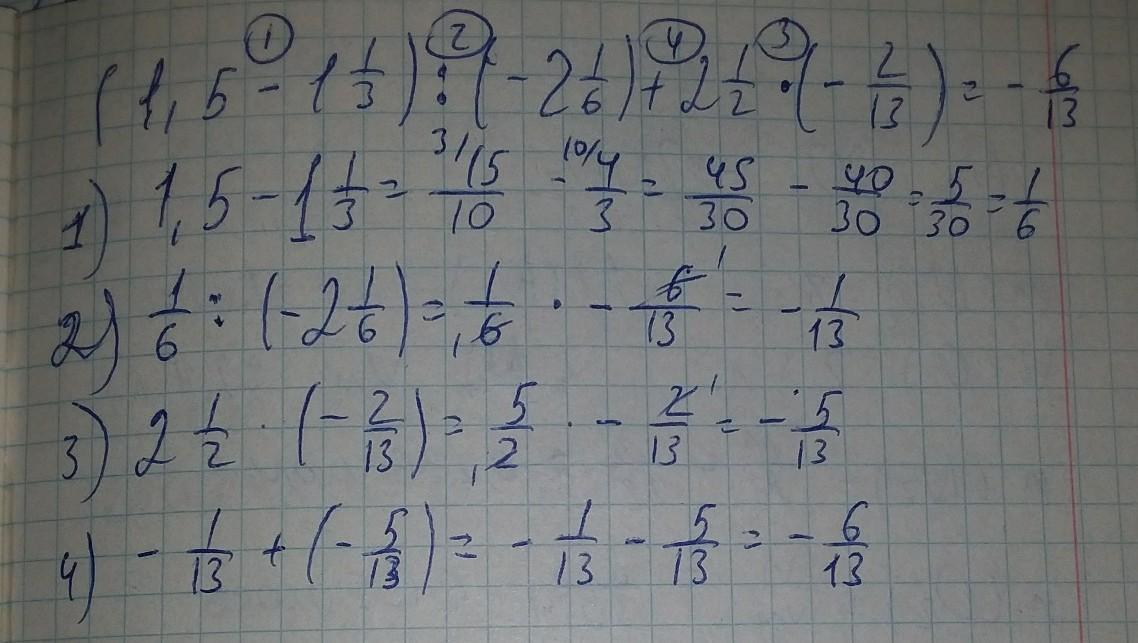 ① ② ④ ③
(1,5 - 1 1/3) : (- 2 1/6) + 2 1/2 · (- 2/13) = - 6/13
1) 1,5 - 1 1/3 = 3/ 15/10 - 10/ 4/3 = 45/30 - 40/30 = 5/30 = 1/6
2) 1/6 : (-2 1/6) = 1/6 1 · - 6/13 1 = - 1/13
3) 2 1/2 · (- 2/13) = 5/2 1 · - 2/13 1 = - 5/13
4) - 1/13 + (- 5/13) = - 1/13 - 5/13 = - 6/13